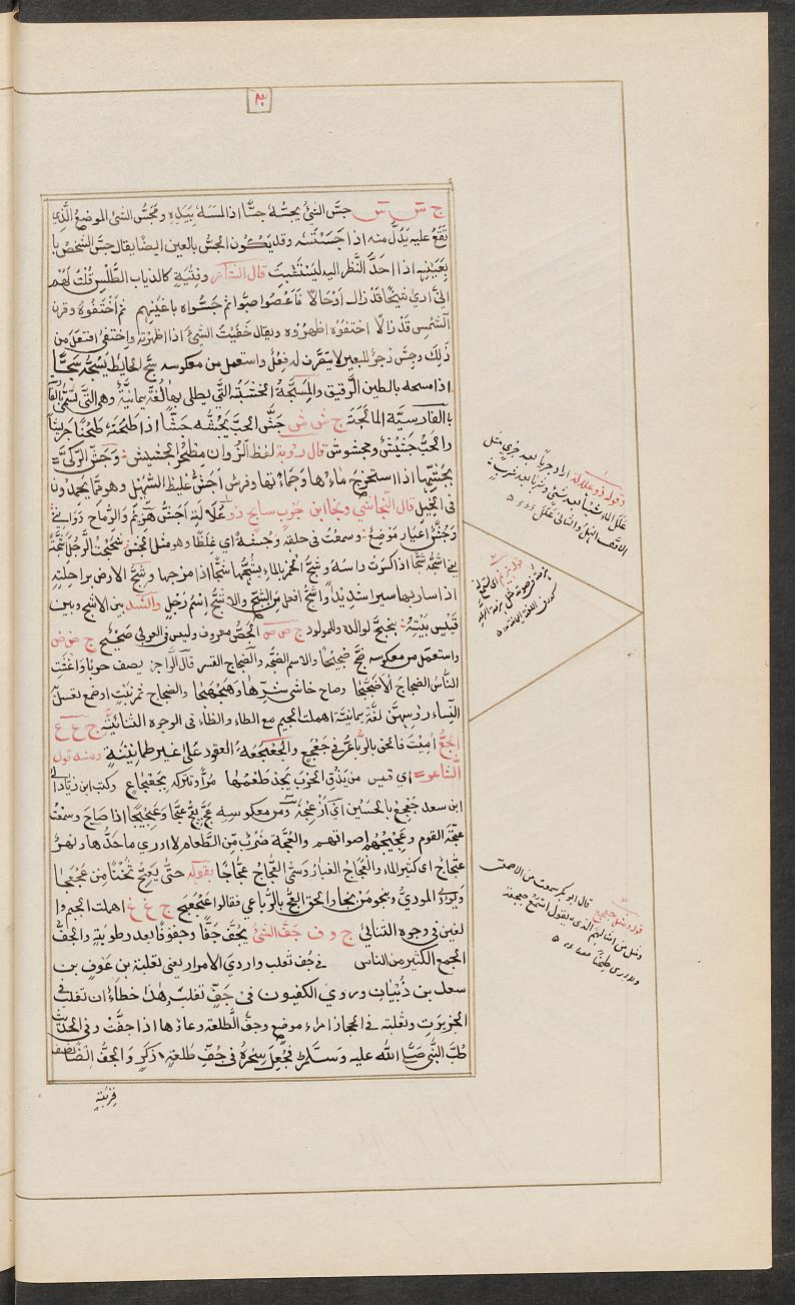 ج س س جسّ الشئ يجسّه جسّا اذا لمسه بيده ومجسّ الشئ الموضع الذى
تقع عليه يدك منه اذا جسسته وقد يكون الجسّ بالعين ايضا يقال جسّ الشخص
بعينه اذا احدّ النظر اليه ليستثبت قال الشاعر وفتية كالذياب الطلس قلت لهم
انى ارى شبحا قد زال او حالا فاعصوصبوا ثم جسّوه باعينهم ثم اختفوه وقرن
الشمس قد زالا اختفوه اظهروه ويقال خفيت الشئ اذا اظهرته واختفى افتعل من
ذلك وجس زجر للبعير لا يتصرف له فعل واستعمل من معكوسه سجّ الحايط يسجّه سجّا
اذا مسحه بالطين الرقيق والمسجّة الخشبة التى يطلى بها لغة يمانية وهى التى تسمى
بالفارسية المالجة ج ش ش جشّ الحبّ يجشّه جشّا اذا طحنه طحنا جريشا
والحب جشيش ومجشوش قال رؤبة لفظ الزوان مطحر الجشيش وجشّ الركىّ
يجشّها اذا استخرج ماءها وحمأتها وفرس اجشّ غليظ الصهيل وهو مما يحمدون
فى الخيل قال النجاشى ونجا ابن حرب سابح ذو علالة اجشّ هزيم والرماح دوانى
وجشّ اعيار موضع وسمعت فى حلقه جشّة اى غلظا وهو مثل شججت الرجل
اشجّه شجّا اذا كسرت راسه وشجّ الخمر بالماء يشجّها شجّا اذا مزجها وشجّ الارض براحلته
اذا سار بها سيرا شديدا واشجّ افعل من الشجّ والاشجّ اسم رجل وانشد بين الاشج وبين
قيس بيته بخبخ لوالده وللمولود ج ص ص الجصّ معروف وليس فى العربى صحيح ج ض ض
واستعمل من معكوسه ضجّ ضجيجا والاسم الضجّة والضجاج القسر قال الراجز يصف حربا واغشت
الناس الضجاج الاضججا وصاح خاشى شرّها وهجهجا والضجاج ثمر نبت او صمغ تغسل به
النساء رؤسهن لغة يمانية اهملت الجيم مع الطاء والظاء فى الوجوه الثنائية ج ع ع
الجعّ اميت فالحق بالرباعى فى جعجع والجعجعة القعود على غير طمانينة ومنه قول
الشاعر اى قيس من يذق الحرب يجد طعمها مرّا وتتركه بجعجاع وكتب ابن زياد الى
ابن سعد جعجع بالحسين اى ازعجه ومن معكوسه عجّ يعجّ عجّا وعجيجا اذا صاح وسمعت
عجّة القوم وعجيجهم اصواتهم والعجّة ضرب من الطعام لا ادرى ما حدّها ونهر
عجّاج اى كثير الماء والعجاج الغبار وسمى العجّاج عجّاجا بقوله حتى يعجّ ثخنا من عجعجا
ويودى المودى وينجو من نجا والحق العجّ بالرباعى فقالوا عجعج ج غ غ اهملت الجيم و
الغين فى وجوه الثنائى ج ف ف جفّ الشئ يجفّ جفّا وجفوفا بعد رطوبة والجفّ
الجمع الكثير من الناس فى جفّ تغلب وارد الامرار يعنى ثعلبة بن عوف بن
سعد بن ذبيان وروى الكوفيون فى جفّ تغلب وهذا خطاء ان تغلب فى
الجزيرة وثعلبة فى الحجاز امراء موضع وجفّ الطلعة وعاؤها اذا جفّت وفى الحديث
طبّ النبى صلّى الله عليه وسلّم فجعل سحره فى جفّ طلعة ذكر والجفّ ايضا نصف
قربة
قوله ذو علالة اراد جريا بعد جرى مثل
علل الماء شربا بعد شئ
الاول النهل والثانى علل
قال ابو بكر سمعت من الاصمعى